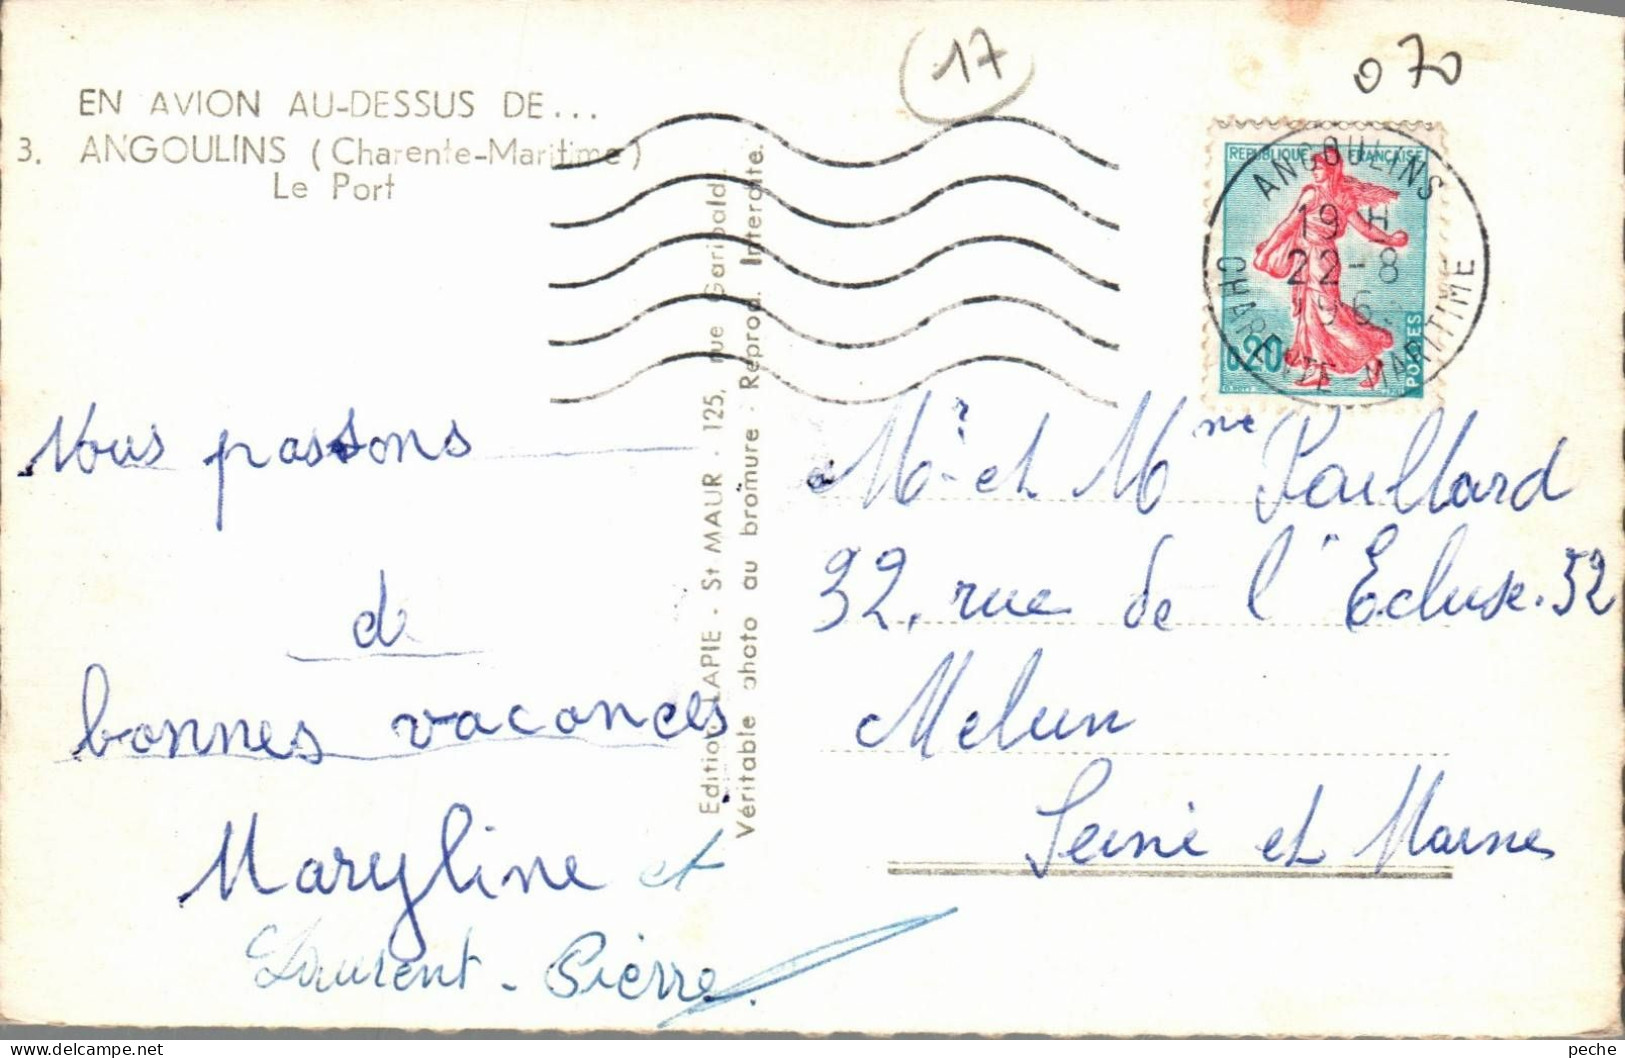 EN AVION AU-DESSUS DE...
3. ANGOULINS (Charente-Maritime)
Le Port
17
070
REPUBLIQUE FRANÇAISE
0,20
POSTES
ANGOULINS
19 H
22-8
CHARENTE MARITIME
Nous passons
de
bonnes vacances
Maryline et
Laurent-Pierre.
Edition LAPIE - St MAUR - 125, rue Garibaldi.
Véritable photo au bromure - Reprod. Interdite.
Mr et Mme Paillard
32, rue de l'Ecluse. 32
Melun
Seine et Marne
peche